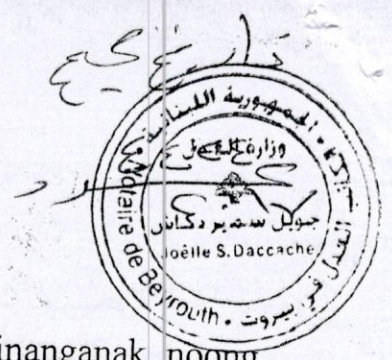 تاريخ صحيح
الجمهورية اللبنانية
وزارة العدل
جويل سمير دكاش
Joëlle S. Daccache
Notaire de Beyrouth
العدل في بيروت
inanganak noong